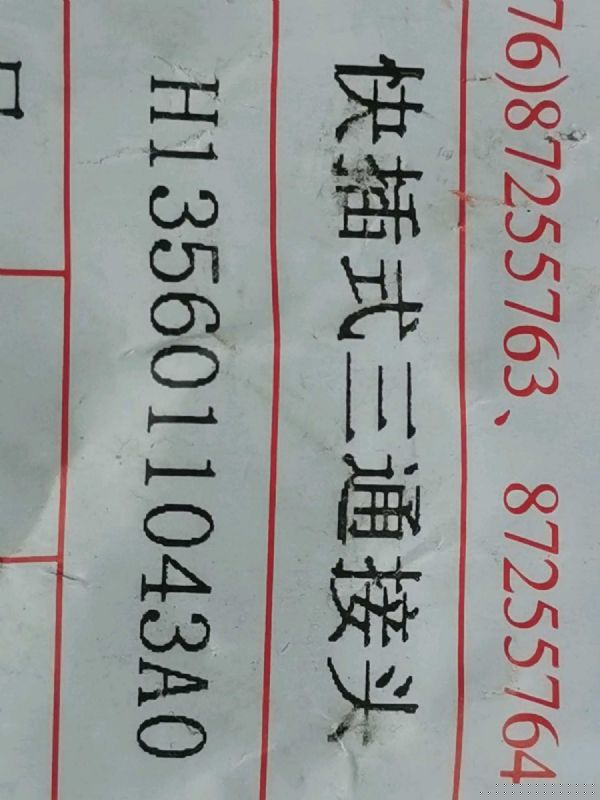 76)87255763、 87255764
快插式三通接头
H1356011043A0